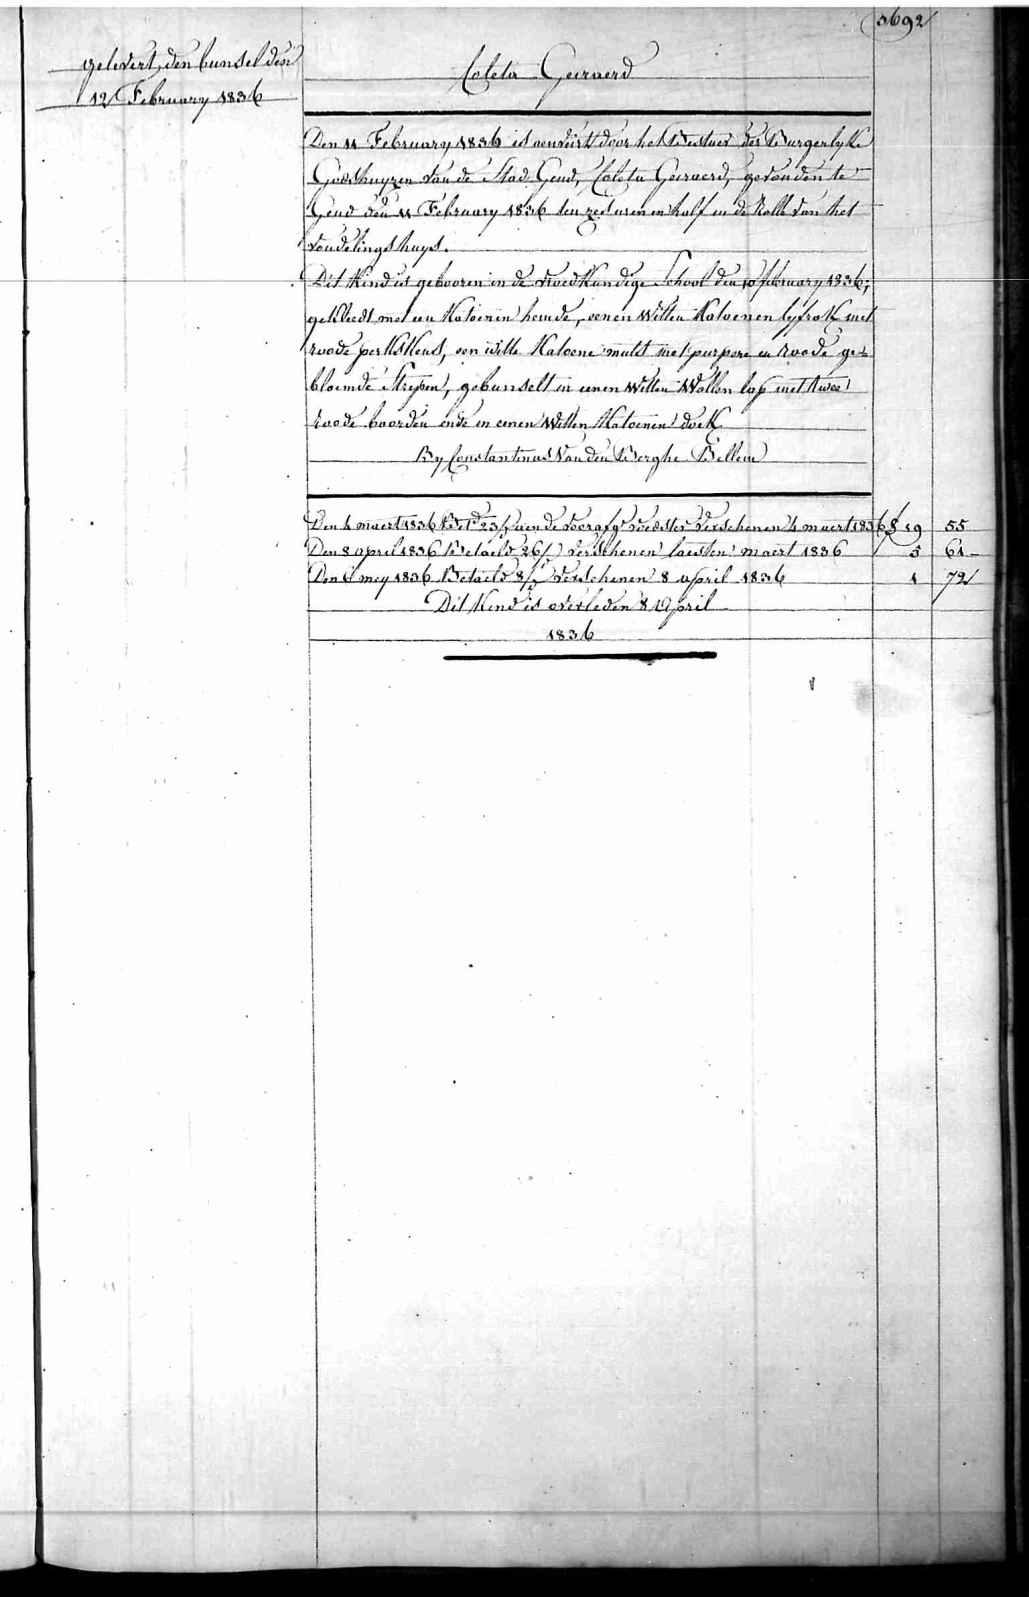 3692
gelevert, den bunsel den
12 February 1836
Coleta Geiraerd
Den 11 February 1836 is aenveirt door het Bestuer der Burgerlyke
Godshuyzen van de Stad Gend, Coleta Geiraerd, gevonden te
Gend den 11 February 1836 ten zes uren en half in de Rolle van het
vondelings huys.
Dit Kind is gebooren in de vroedkundige School den 10 february 1836;
gekleedt met een Katoenen hemde, eenen Witten Katoenen lyfrok met
roode perkskens, een witte Katoene muts met purpere en roode ge-
bloemde Strepen, gebunselt in eenen Witten Wollen lap met twee
roode boorden ende in eenen Witten Katoenen doek
By Constantinus Van den Berghe Bellem
Den 4 maert 1836 Bet.d 23/ aen de voorafg. voedster verschenen 4 maert 1836 f 19 55
Den 8 april 1836 Betaeld 26/ verschenen laesten maert 1836 5 61
Den 6 mey 1836 Betaeld 8/ verschenen 8 april 1836 1 72
Dit Kind is overleden 8 April
1836